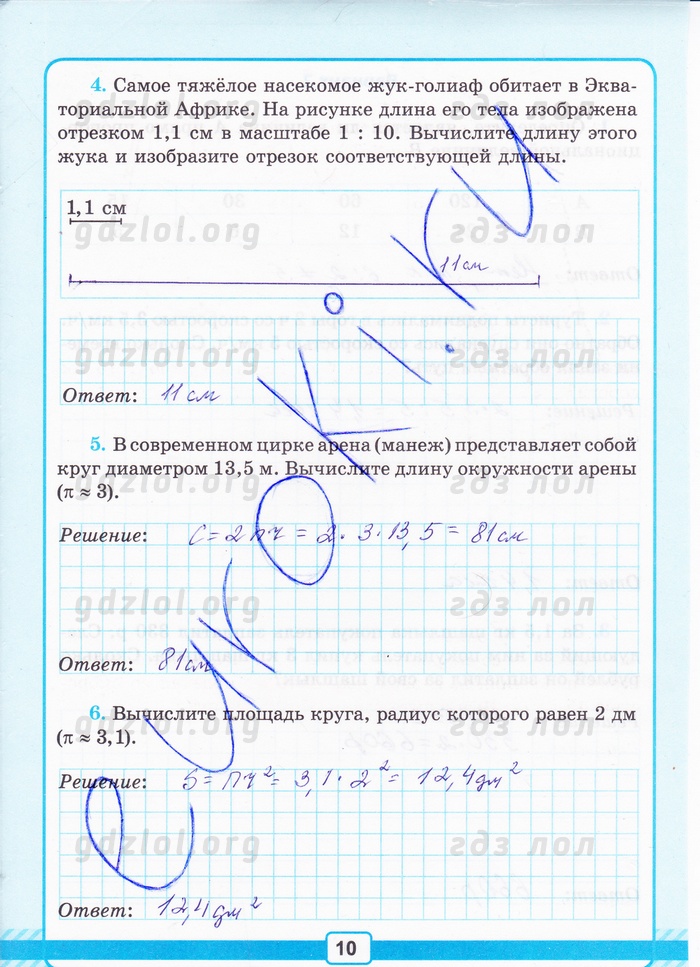 4. Самое тяжёлое насекомое жук-голиаф обитает в Эква-
ториальной Африке. На рисунке длина его тела изображена
отрезком 1,1 см в масштабе 1 : 10. Вычислите длину этого
жука и изобразите отрезок соответствующей длины.
gdzlol.org гдз лол
1,1 см
gdzlol.org гдз лол
11 см
gdzlol.org гдз лол
Ответ: 11 см
5. В современном цирке арена (манеж) представляет собой
круг диаметром 13,5 м. Вычислите длину окружности арены
(π ≈ 3).
gdzlol.org гдз лол
Решение: C = 2πr = 2 · 3 · 13,5 = 81 см
gdzlol.org гдз лол
Ответ: 81 см
6. Вычислите площадь круга, радиус которого равен 2 дм
(π ≈ 3,1).
gdzlol.org гдз лол
Решение: S = πr² = 3,1 · 2² = 12,4 дм²
gdzlol.org гдз лол
Ответ: 12,4 дм²
10